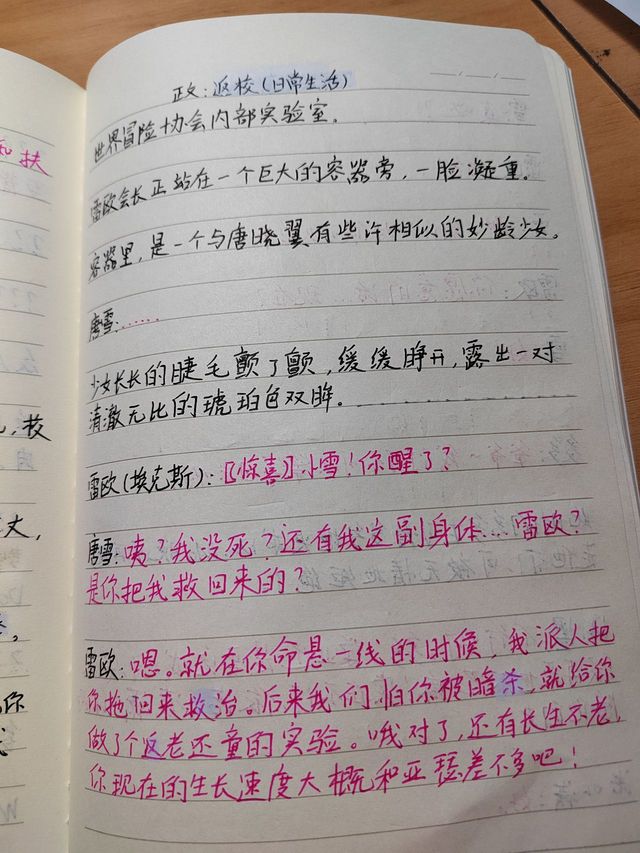 正文：返校（日常生活）
世界冒险协会内部实验室。
雷欧会长正站在一个巨大的容器旁，一脸凝重。
容器里，是一个与唐晓翼有些许相似的妙龄少女。
唐雪：……
少女长长的睫毛颤了颤，缓缓睁开，露出一对
清澈无比的琥珀色双眸。
雷欧（埃克斯）：【惊喜】小雪！你醒了？
唐雪：咦？我没死？还有我这副身体……雷欧？
是你把我救回来的？
雷欧：嗯。就在你命悬一线的时候，我派人把
你拖回来救治。后来我们怕你被暗杀，就给你
做了个返老还童的实验。哦对了，还有长生不老，
你现在的生长速度大概和亚瑟差不多吧！
和扶
，
丈，
你